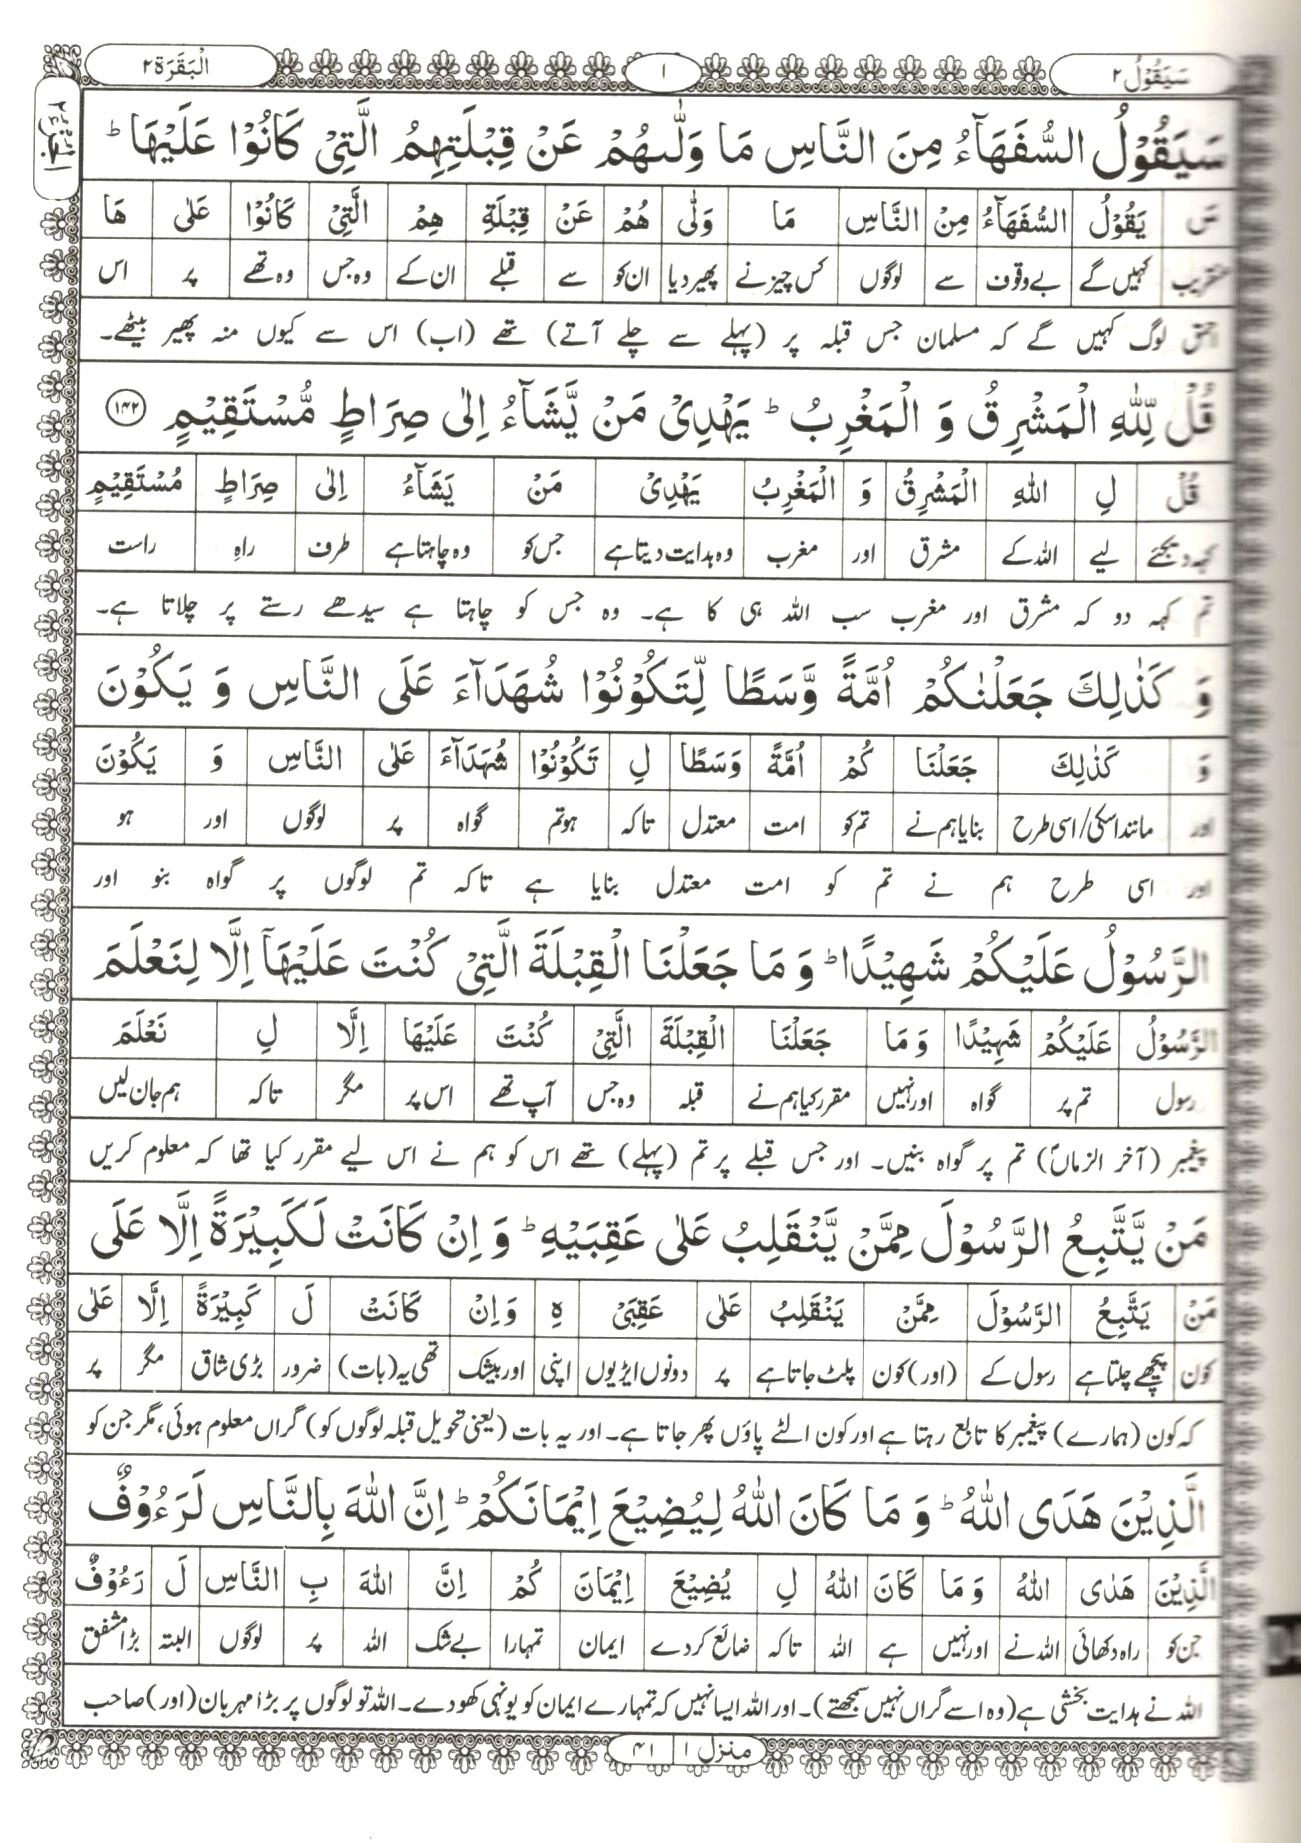 سَيَقُوْلُ ٢ ١ اَلْبَقَرَة ٢
سَيَقُوْلُ السُّفَهَآءُ مِنَ النَّاسِ مَا وَلّٰىهُمْ عَنْ قِبْلَتِهِمُ الَّتِيْ كَانُوْا عَلَيْهَا ؕ
سَ يَقُوْلُ السُّفَهَآءُ مِنَ النَّاسِ مَا وَلّٰى هُمْ عَنْ قِبْلَةِ هِمُ الَّتِيْ كَانُوْا عَلٰى هَا
عنقریب کہیں گے بے وقوف سے لوگوں کس چیز نے پھیر دیا ان کو سے قبلے ان کے وہ جس وہ تھے پر اس
احمق لوگ کہیں گے کہ مسلمان جس قبلہ پر (پہلے سے چلے آتے) تھے (اب) اس سے کیوں منہ پھیر بیٹھے۔
قُلْ لِّلّٰهِ الْمَشْرِقُ وَ الْمَغْرِبُ ؕ يَهْدِيْ مَنْ يَّشَآءُ اِلٰى صِرَاطٍ مُّسْتَقِيْمٍ ﴿۱۴۲﴾
قُلْ لِ اللّٰهِ الْمَشْرِقُ وَ الْمَغْرِبُ يَهْدِيْ مَنْ يَشَآءُ اِلٰى صِرَاطٍ مُسْتَقِيْمٍ
کہہ دیجئے لیے اللہ کے مشرق اور مغرب وہ ہدایت دیتا ہے جس کو وہ چاہتا ہے طرف راہِ راست
تم کہہ دو کہ مشرق اور مغرب سب اللہ ہی کا ہے۔ وہ جس کو چاہتا ہے سیدھے رستے پر چلاتا ہے۔
وَ كَذٰلِكَ جَعَلْنٰكُمْ اُمَّةً وَّسَطًا لِّتَكُوْنُوْا شُهَدَآءَ عَلَى النَّاسِ وَ يَكُوْنَ
وَ كَذٰلِكَ جَعَلْنَا كُمْ اُمَّةً وَسَطًا لِ تَكُوْنُوْا شُهَدَآءَ عَلَى النَّاسِ وَ يَكُوْنَ
اور مانند اسکی/اسی طرح بنایا ہم نے تم کو امت معتدل تاکہ ہو تم گواہ پر لوگوں اور ہو
اور اسی طرح ہم نے تم کو امت معتدل بنایا ہے تاکہ تم لوگوں پر گواہ بنو اور
الرَّسُوْلُ عَلَيْكُمْ شَهِيْدًا ؕ وَ مَا جَعَلْنَا الْقِبْلَةَ الَّتِيْ كُنْتَ عَلَيْهَآ اِلَّا لِنَعْلَمَ
الرَّسُوْلُ عَلَيْكُمْ شَهِيْدًا وَ مَا جَعَلْنَا الْقِبْلَةَ الَّتِيْ كُنْتَ عَلَيْهَا اِلَّا لِ نَعْلَمَ
رسول تم پر گواہ اور نہیں مقرر کیا ہم نے قبلہ وہ جس آپ تھے اس پر مگر تاکہ ہم جان لیں
پیغمبر (آخر الزماں) تم پر گواہ بنیں۔ اور جس قبلے پر تم (پہلے) تھے اس کو ہم نے اس لیے مقرر کیا تھا کہ معلوم کریں
مَنْ يَّتَّبِعُ الرَّسُوْلَ مِمَّنْ يَّنْقَلِبُ عَلٰى عَقِبَيْهِ ؕ وَ اِنْ كَانَتْ لَكَبِيْرَةً اِلَّا عَلَى
مَنْ يَتَّبِعُ الرَّسُوْلَ مِمَّنْ يَنْقَلِبُ عَلٰى عَقِبَيْ هِ وَ اِنْ كَانَتْ لَ كَبِيْرَةً اِلَّا عَلٰى
کون پیچھے چلتا ہے رسول کے (اور) کون پلٹ جاتا ہے پر دونوں ایڑیوں اپنی اور بیشک تھی یہ (بات) ضرور بڑی شاق مگر پر
کہ کون (ہمارے) پیغمبر کا تابع رہتا ہے اور کون الٹے پاؤں پھر جاتا ہے۔ اور یہ بات (یعنی تحویل قبلہ لوگوں کو) گراں معلوم ہوئی، مگر جن کو
الَّذِيْنَ هَدَى اللّٰهُ ؕ وَ مَا كَانَ اللّٰهُ لِيُضِيْعَ اِيْمَانَكُمْ ؕ اِنَّ اللّٰهَ بِالنَّاسِ لَرَءُوْفٌ
الَّذِيْنَ هَدٰى اللّٰهُ وَ مَا كَانَ اللّٰهُ لِ يُضِيْعَ اِيْمَانَ كُمْ اِنَّ اللّٰهَ بِ النَّاسِ لَ رَءُوْفٌ
جن کو راہ دکھائی اللہ نے اور نہیں ہے اللہ تاکہ ضائع کر دے ایمان تمہارا بے شک اللہ پر لوگوں البتہ بڑا مشفق
اللہ نے ہدایت بخشی ہے (وہ اسے گراں نہیں سمجھتے)۔ اور اللہ ایسا نہیں کہ تمہارے ایمان کو یونہی کھو دے۔ اللہ تو لوگوں پر بڑا مہربان (اور) صاحب
منزل ۱ ۴۱